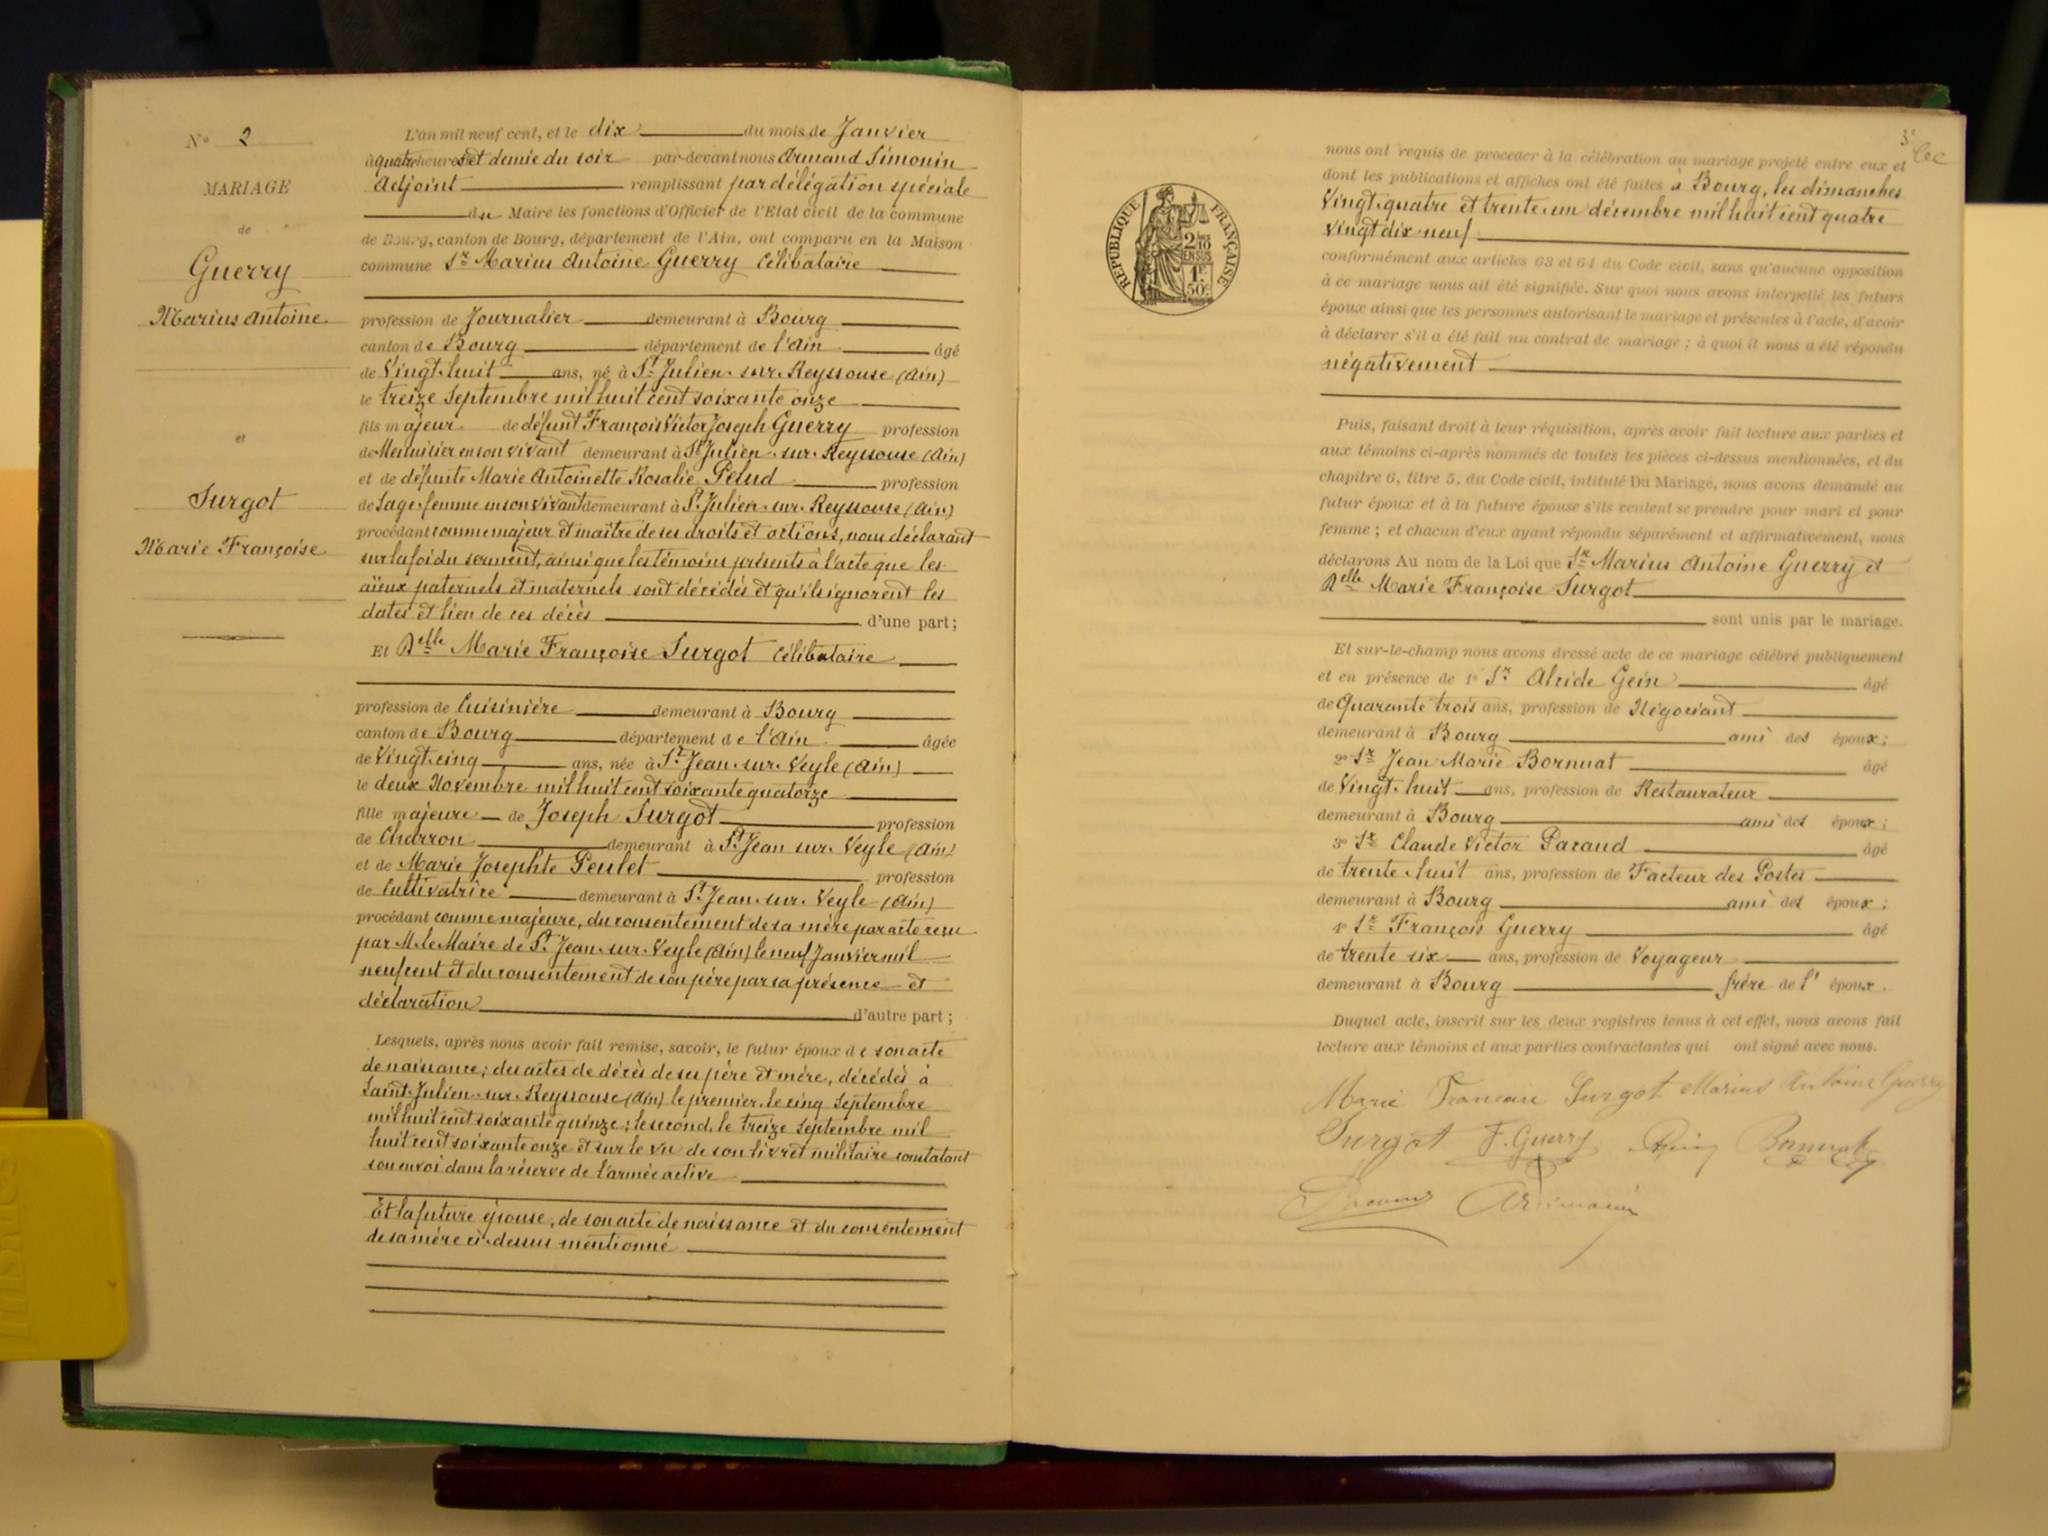 N° 2
MARIAGE
de
Guerry
Marius Antoine
et
Surgot
Marie Françoise
L'an mil neuf cent, et le dix du mois de Janvier
à quatre heures et demie du soir par-devant nous Armand Simonin
Adjoint remplissant par délégation spéciale
du Maire les fonctions d'Officier de l'Etat civil de la commune
de Bourg, canton de Bourg, département de l'Ain, ont comparu en la Maison
commune Sr Marius Antoine Guerry célibataire
profession de Journalier demeurant à Bourg
canton de Bourg département de l'Ain âgé
de Vingt-huit ans, né à St Julien-sur-Reyssouse (Ain)
le treize Septembre mil huit cent soixante onze
fils majeur de défunt François Victor Joseph Guerry profession
de Menuisier en son vivant demeurant à St Julien-sur-Reyssouse (Ain)
et de défunte Marie Antoinette Rosalie Pelud profession
de Sage-femme en son vivant demeurant à St Julien-sur-Reyssouse (Ain)
procédant comme majeur et maître de ses droits et actions, nous déclarant
sur la foi du serment, ainsi que les témoins présents à l'acte que les
aïeux paternels et maternels sont décédés et qu'ils ignorent les
dates et lieu de ces décès d'une part;
Et Delle Marie Françoise Surgot célibataire
profession de Cuisinière demeurant à Bourg
canton de Bourg département de l'Ain âgée
de Vingt-cinq ans, née à St Jean-sur-Veyle (Ain)
le deux Novembre mil huit cent soixante quatorze
fille majeure de Joseph Surgot profession
de Charron demeurant à St Jean-sur-Veyle (Ain)
et de Marie Josephte Peulet profession
de Cultivatrice demeurant à St Jean-sur-Veyle (Ain)
procédant comme majeure, du consentement de sa mère par acte reçu
par M. le Maire de St Jean-sur-Veyle (Ain) le neuf Janvier mil
neuf cent et du consentement de son père par sa présence et
déclaration d'autre part;
Lesquels, après nous avoir fait remise, savoir, le futur époux de son acte
de naissance; des actes de décès de ses père et mère, décédés à
Saint-Julien-sur-Reyssouse (Ain) le premier, le cinq Septembre
mil huit cent soixante quinze; le second, le treize Septembre mil
huit cent soixante onze et sur le vu de son livret militaire constatant
son envoi dans la réserve de l'armée active
Et la future épouse, de son acte de naissance et du consentement
de sa mère ci-dessus mentionné
RÉPUBLIQUE FRANÇAISE
1F
50c
nous ont requis de procéder à la célébration du mariage projeté entre eux et
dont les publications et affiches ont été faites à Bourg, les dimanches
Vingt-quatre et trente-un décembre mil huit cent quatre
vingt dix neuf
conformément aux articles 63 et 64 du Code civil, sans qu'aucune opposition
à ce mariage nous ait été signifiée. Sur quoi nous avons interpellé les futurs
époux ainsi que les personnes autorisant le mariage et présentes à l'acte, d'avoir
à déclarer s'il a été fait un contrat de mariage; à quoi il nous a été répondu
négativement
Puis, faisant droit à leur réquisition, après avoir fait lecture aux parties et
aux témoins ci-après nommés de toutes les pièces ci-dessus mentionnées, et du
chapitre 6, titre 5, du Code civil, intitulé Du Mariage, nous avons demandé au
futur époux et à la future épouse s'ils veulent se prendre pour mari et pour
femme; et chacun d'eux ayant répondu séparément et affirmativement, nous
déclarons Au nom de la Loi que Sr Marius Antoine Guerry et
Delle Marie Françoise Surgot
sont unis par le mariage.
Et sur-le-champ nous avons dressé acte de ce mariage célébré publiquement
et en présence de 1° Sr Alcide Gein âgé
de Quarante trois ans, profession de Négociant
demeurant à Bourg ami des époux;
2° Sr Jean Marie Bornuat âgé
de Vingt-huit ans, profession de Restaurateur
demeurant à Bourg ami des époux;
3° Sr Claude Victor Paraud âgé
de trente-huit ans, profession de Facteur des Postes
demeurant à Bourg ami des époux;
4° Sr François Guerry âgé
de trente six ans, profession de Voyageur
demeurant à Bourg frère de l'époux.
Duquel acte, inscrit sur les deux registres tenus à cet effet, nous avons fait
lecture aux témoins et aux parties contractantes qui ont signé avec nous.
Marie Francoise Surgot Marius Antoine Guerry
Surgot F. Guerry Bornuat